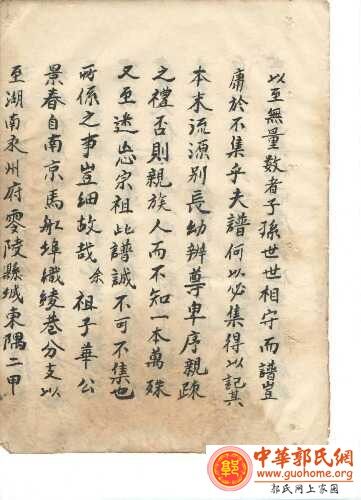 以至無量数者子孫世世相守而譜豈
庸於不集乎夫譜何以必集得以記其
本末流源别長幼辨尊卑序親疎
之禮否則親族人而不知一本萬殊
又至迷忘宗祖此譜誠不可不集也
所係之事豈細故哉 余 祖子華公
景春自南京馬舡埠織綾巷分支以
至湖南永州府零陵縣城東隅二甲
中華郭氏網
www.guohome.com
郭氏网上家园